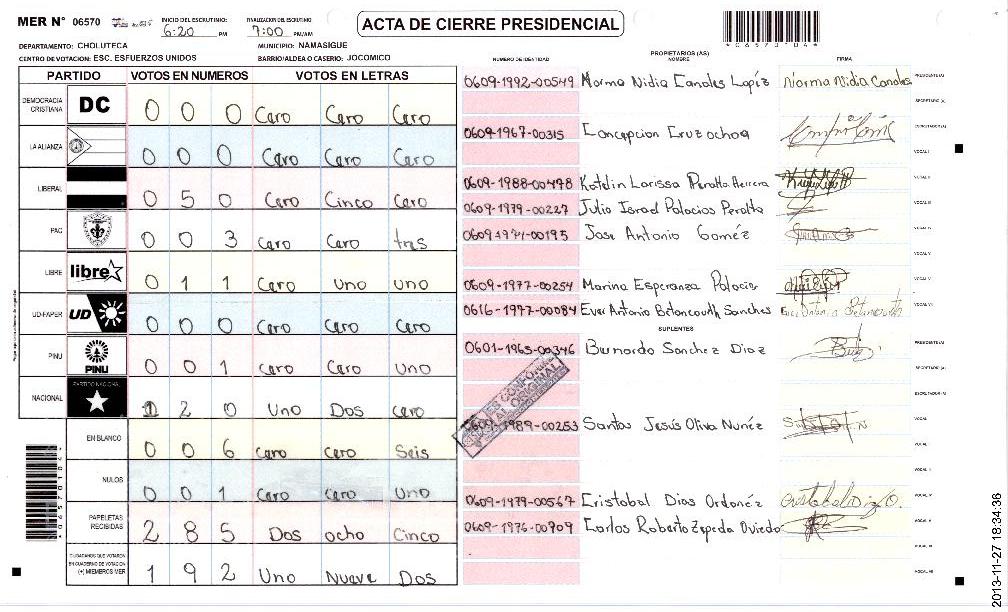 MER N° 06570
INICIO DEL ESCRUTINIO 6:20 PM
FINALIZACION DEL ESCRUTINIO 7:00 PM/AM
ACTA DE CIERRE PRESIDENCIAL
*06570104*
DEPARTAMENTO: CHOLUTECA MUNICIPIO: NAMASIGUE
CENTRO DE VOTACION: ESC. ESFUERZOS UNIDOS BARRIO/ALDEA O CASERIO: JOCOMICO
PARTIDO VOTOS EN NUMEROS VOTOS EN LETRAS
DEMOCRACIA CRISTIANA DC 0 0 0 Cero Cero Cero
LA ALIANZA 0 0 0 Cero Cero Cero
LIBERAL 0 5 0 Cero Cinco Cero
PAC 0 0 3 Cero Cero tres
LIBRE libre 0 1 1 Cero uno uno
UD-FAPER UD 0 0 0 Cero Cero Cero
PINU PINU 0 0 1 Cero Cero uno
NACIONAL PARTIDO NACIONAL 1 2 0 Uno Dos cero
EN BLANCO 0 0 6 Cero Cero Seis
NULOS 0 0 1 Cero Cero uno
PAPELETAS RECIBIDAS 2 8 5 Dos ocho Cinco
CIUDADANOS QUE VOTARON EN CUADERNO DE VOTACION (+) MIEMBROS MER 1 9 2 Uno Nueve Dos
PROPIETARIOS (AS)
NUMERO DE IDENTIDAD NOMBRE FIRMA
0609-1992-00549 Norma Nidia Canales Lopéz Norma Nidia Canales PRESIDENTE(A)
SECRETARIO (A)
0609-1967-00315 Concepcion Cruz ochoa ESCRUTADOR(A)
VOCAL I
0609-1988-00478 Katelin Larissa Peralta Herrera VOCAL II
0609-1979-00227 Julio Israel Palacios Peralta VOCAL III
0609-1971-00195 Jose Antonio Goméz VOCAL IV
VOCAL V
0609-1977-00254 Marina Esperanza Palacios
0616-1977-00084 Ever Antonio Betancourth Sanches
SUPLENTES
0601-1965-00346 Bernardo Sanchez Diaz PRESIDENTE(A)
SECRETARIO (A)
ESCRUTADOR(A)
-1989-00253 Santos Jesús Oliva Nunéz VOCAL
0609-1979-00567 Cristobal Dias Ordonéz
0609-1976-00709 Carlos Roberto Zepeda Oviedo
ES CONFORME AL ORIGINAL
2013-11-27 18:34:36